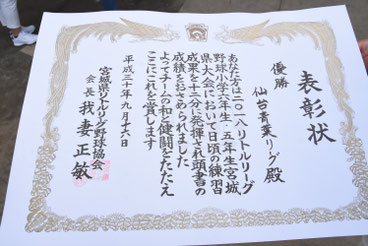 表彰状
優勝
仙台青葉リーグ殿
あなた方は二〇一八リトルリーグ
野球小学六年生・五年生宮城
県大会において日頃の練習
成果を十二分に発揮され頭書の
成績をおさめられました
よってチームの和と健闘をたたえ
ここにこれを賞します
平成三十年九月十六日
宮城県リトルリーグ野球協会
会長 我妻正敏